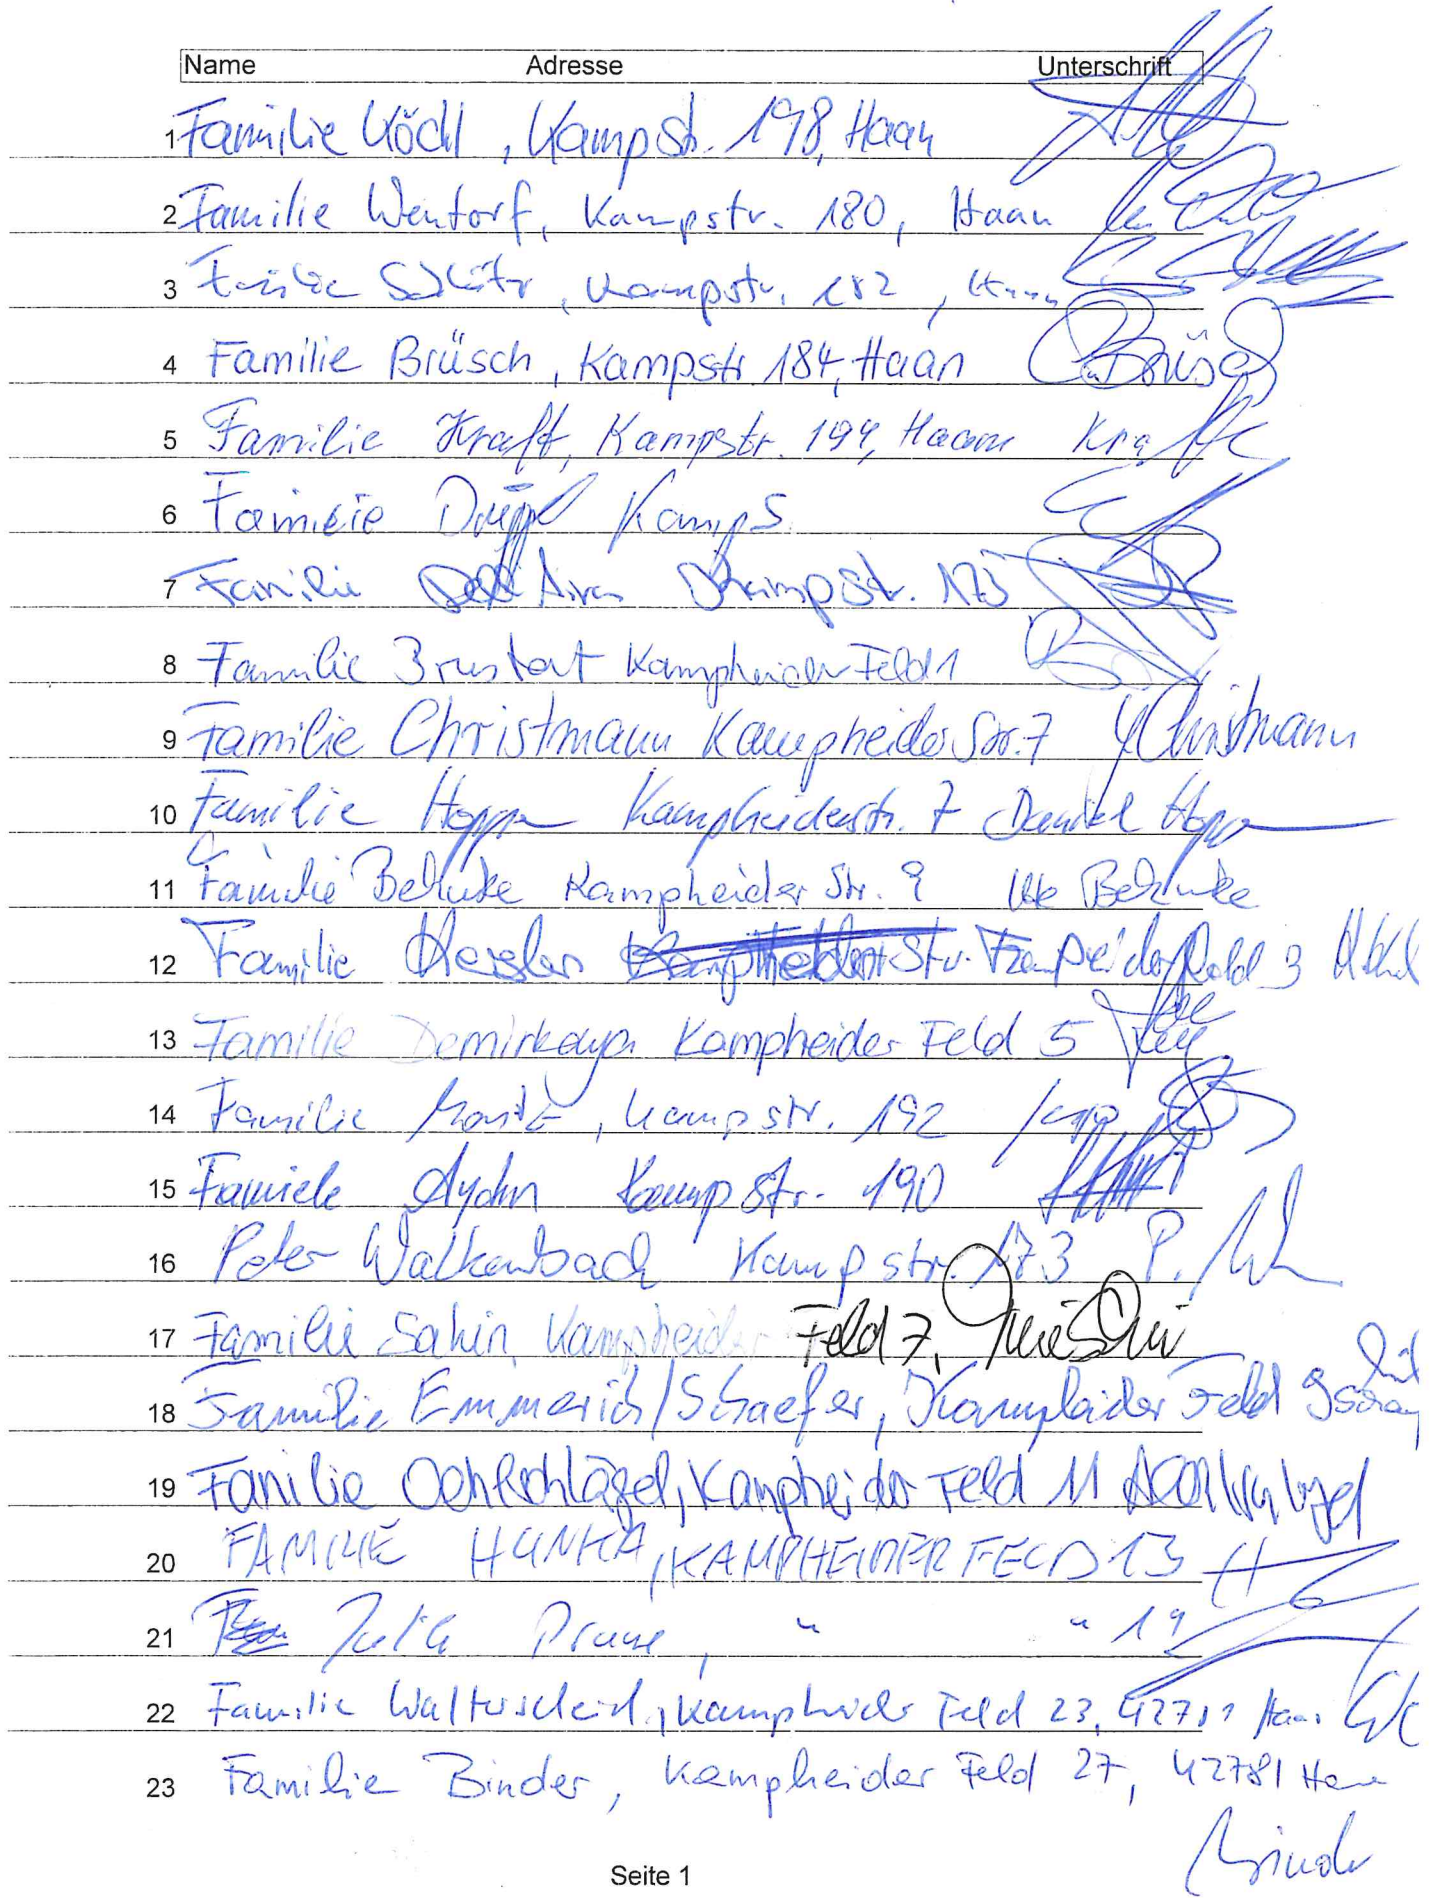 Name Adresse Unterschrift
1 Familie Köchl, Kampstr. 198, Haan
2 Familie Wentorf, Kampstr. 180, Haan
3 Familie Kampstr. 182, Haan
4 Familie Brüsch, Kampstr 184, Haan Brüsch
5 Familie Kraft, Kampstr. 194, Haan Kraft
6 Familie Kamps
7 Familie Kampstr. 175
8 Familie Brustat Kampheider Feld 1
9 Familie Christmann Kampheider Str. 7 Christmann
10 Familie Hoppe Kampheiderstr. 7 Daniel Hoppe
11 Familie Behnke Kampheider Str. 9 Ute Behnke
12 Familie Str. Kampheider Feld 3
13 Familie Demirkaya Kampheider Feld 5
14 Familie Kampstr. 192
15 Familie Aydin Kampstr. 190
16 Peter Walkenbach Kampstr. 173 P.
17 Familie Sahin, Kampheider Feld 7,
18 Familie Emmerich/Schaefer, Kampheider Feld 9
19 Familie Oehlschlägel, Kampheider Feld 11
20 FAMILIE HUNKA, KAMPHEIDER FELD 13
21 Jutta , " " 19
22 Familie Walterscheid, Kampheider Feld 23, 42781 Haan
23 Familie Binder, Kampheider Feld 27, 42781 Haan
Binder
Seite 1